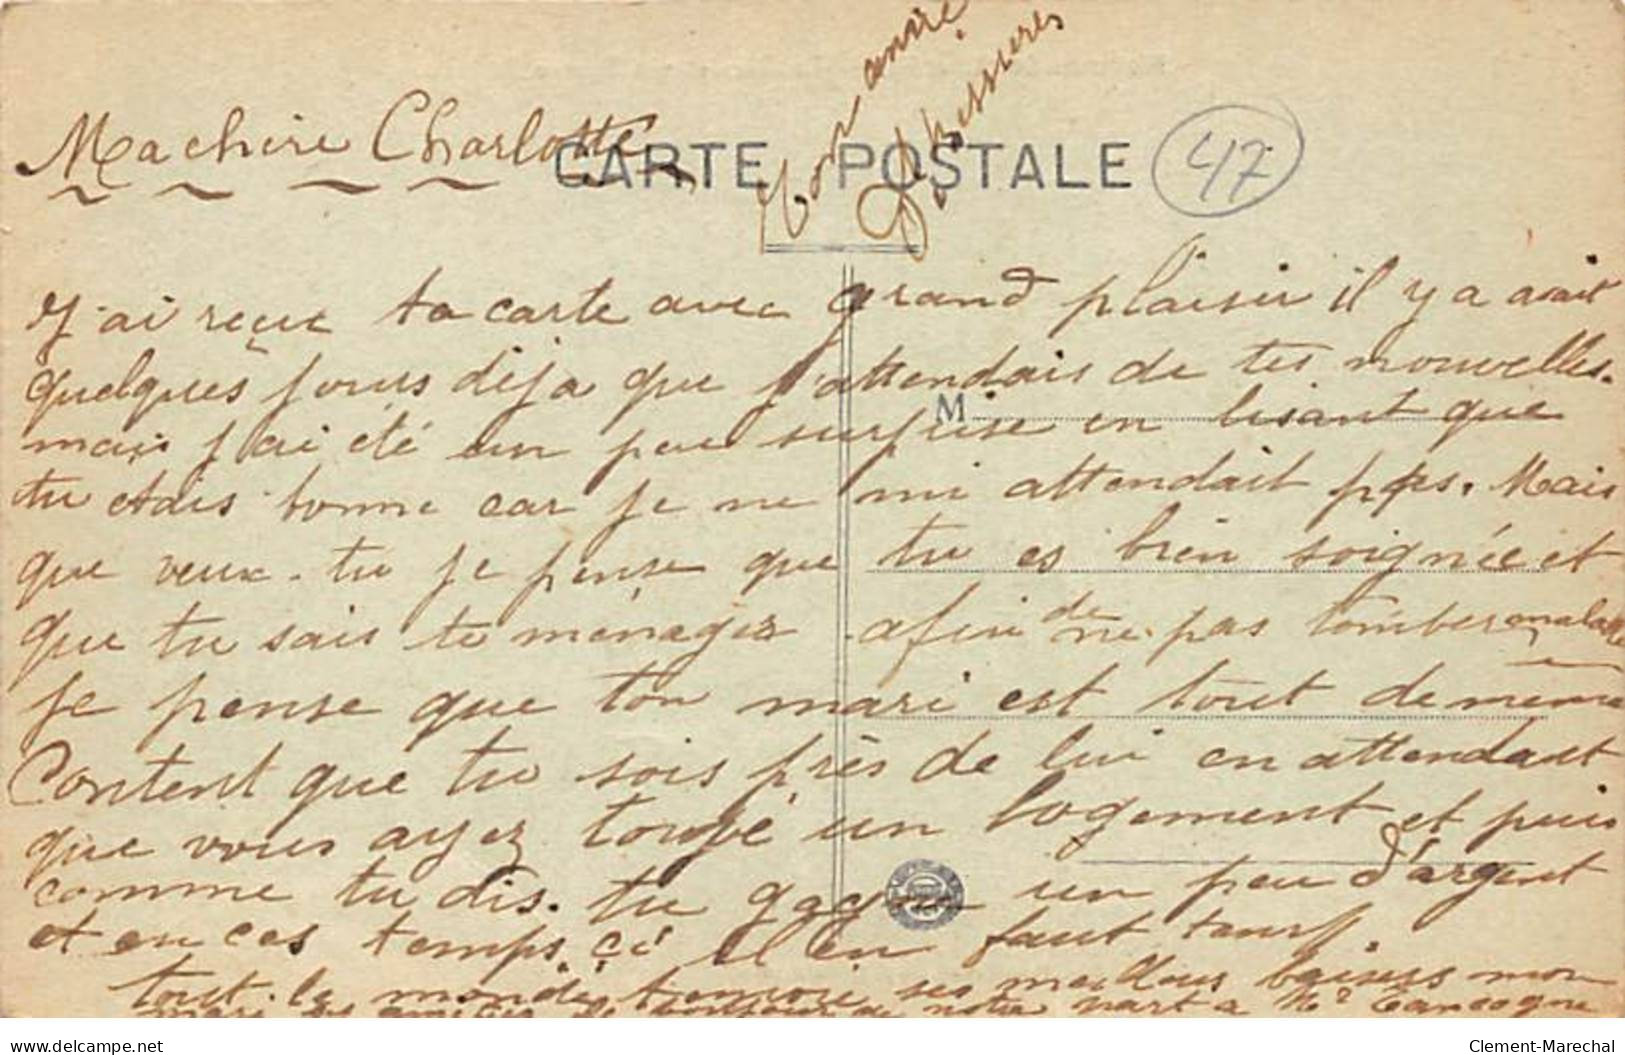 Ma chère Charlotte
CARTE POSTALE
47
Ton amie
J'ai reçue ta carte avec grand plaisir il y a avait
quelques jours déja que j'attendais de tes nouvelles.
M
mais j'ai été un peu surprise en lisant que
tu etais bonne car je ne mi attendait pas. Mais
que veux-tu je pense que tu es bien soignée et
que tu sais te menagez afin de ne pas tomber malade
je pense que ton mari est tout de même
Content que tu sois près de lui en attendant
que vous ayez une un logement et puis
comme tu dis. tu gagne un peu d'argent
et en ces temps çi il en faut
tout le monde ses meillous baisers mon
mari bonjour de notre part a Mr
delcampe.net
Clement-Marechal